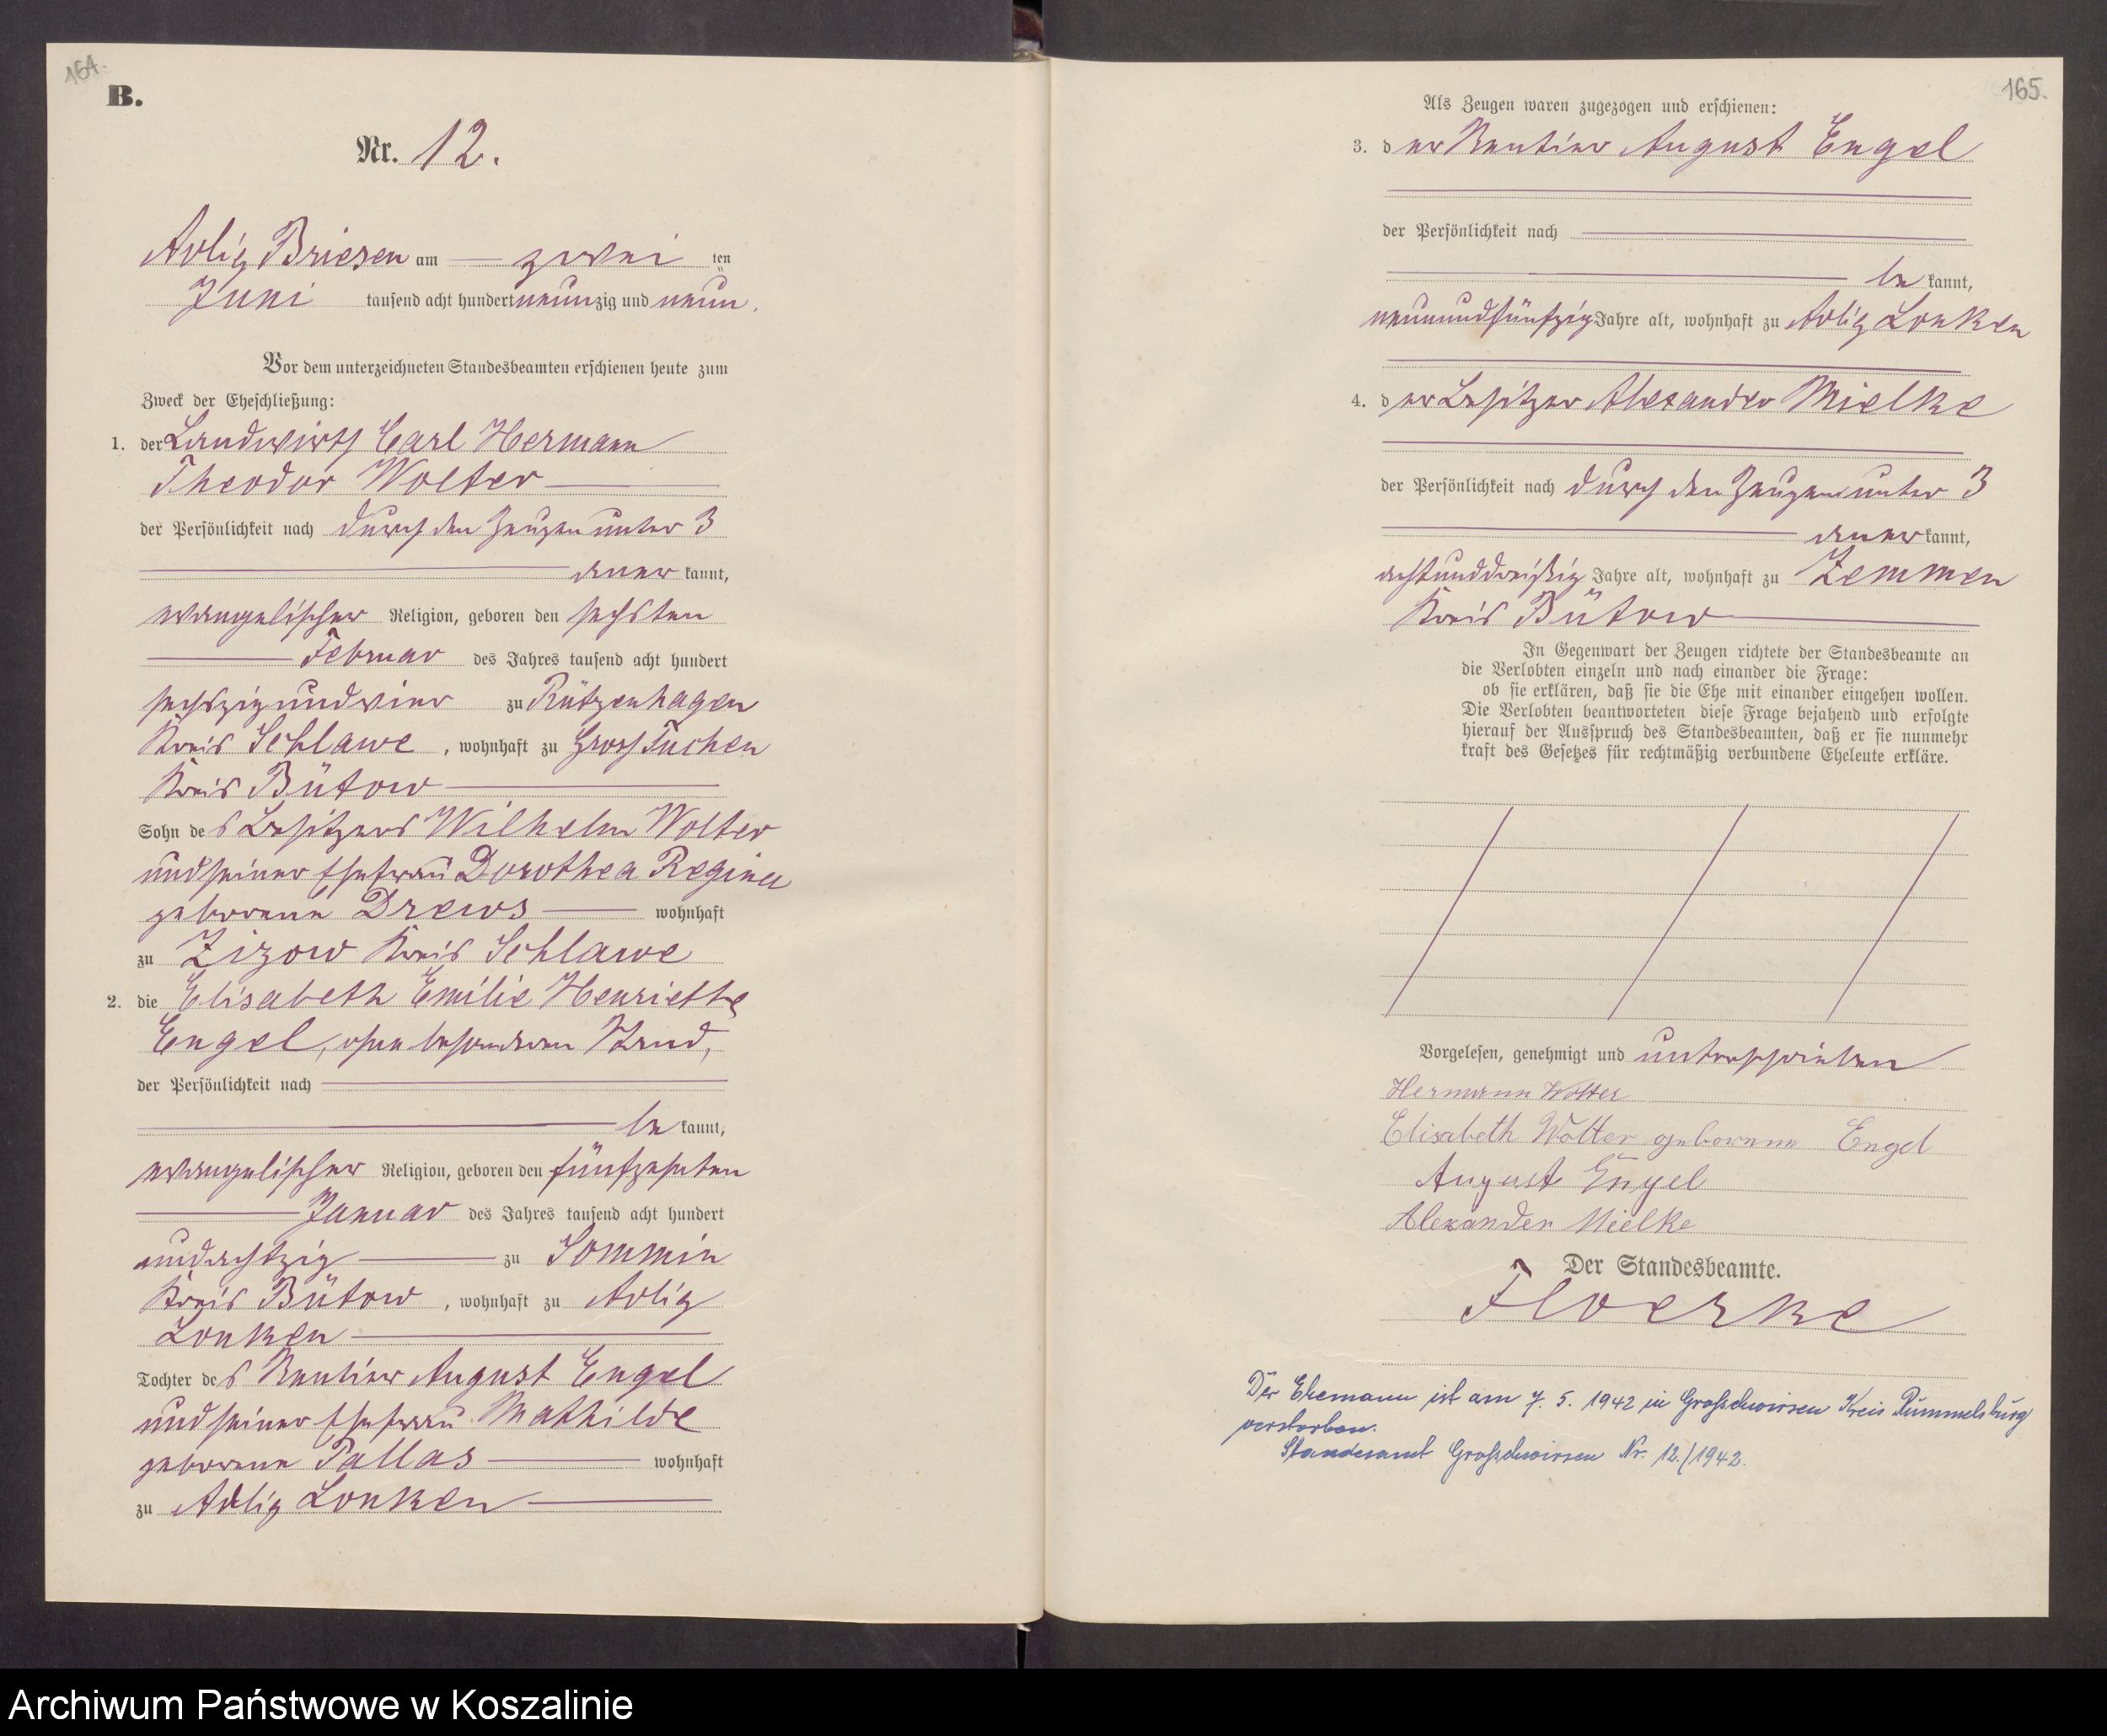 164.
B.
Nr. 12.
Adlig Briesen am zwei ten
Juni tausend acht hundert neunzig und neun.
Vor dem unterzeichneten Standesbeamten erschienen heute zum
Zweck der Eheschließung:
1. der Landwirth Carl Hermann
Theodor Wolter
der Persönlichkeit nach durch den Zeugen unter 3
aner kannt,
evangelischer Religion, geboren den sechsten
Februar des Jahres tausend acht hundert
sechszig und vier zu Rützenhagen
Kreis Schlawe, wohnhaft zu Gross Tuchen
Kreis Bütow
Sohn des Besitzers Wilhelm Wolter
und seiner Ehefrau Dorothea Regina
geborene Drews wohnhaft
zu Zizow Kreis Schlawe
2. die Elisabeth Emilie Henriette
Engel, ohne besonderen Stand,
der Persönlichkeit nach
be kannt,
evangelischer Religion, geboren den fünfzehnten
Januar des Jahres tausend acht hundert
und achtzig zu Sommin
Kreis Bütow, wohnhaft zu Adlig
Lonken
Tochter des Rentier August Engel
und seiner Ehefrau Mathilde
geborene Pallas wohnhaft
zu Adlig Lonken
165.
Als Zeugen waren zugezogen und erschienen:
3. der Rentier August Engel
der Persönlichkeit nach
be kannt,
neunundfünfzig Jahre alt, wohnhaft zu Adlig Lonken
4. der Besitzer Alexander Mielke
der Persönlichkeit nach durch den Zeugen unter 3
aner kannt,
achtunddreißig Jahre alt, wohnhaft zu Zemmen
Kreis Bütow
In Gegenwart der Zeugen richtete der Standesbeamte an
die Verlobten einzeln und nach einander die Frage:
ob sie erklären, daß sie die Ehe mit einander eingehen wollen.
Die Verlobten beantworteten diese Frage bejahend und erfolgte
hierauf der Ausspruch des Standesbeamten, daß er sie nunmehr
kraft des Gesetzes für rechtmäßig verbundene Eheleute erkläre.
Vorgelesen, genehmigt und unterschrieben
Hermann Wolter
Elisabeth Wolter geborene Engel
August Engel
Alexander Mielke
Der Standesbeamte.
Floerke
Der Ehemann ist am 7. 5. 1942 in Großschwirsen Kreis Rummelsburg
verstorben.
Standesamt Großschwirsen Nr. 12./1942.
Archiwum Państwowe w Koszalinie